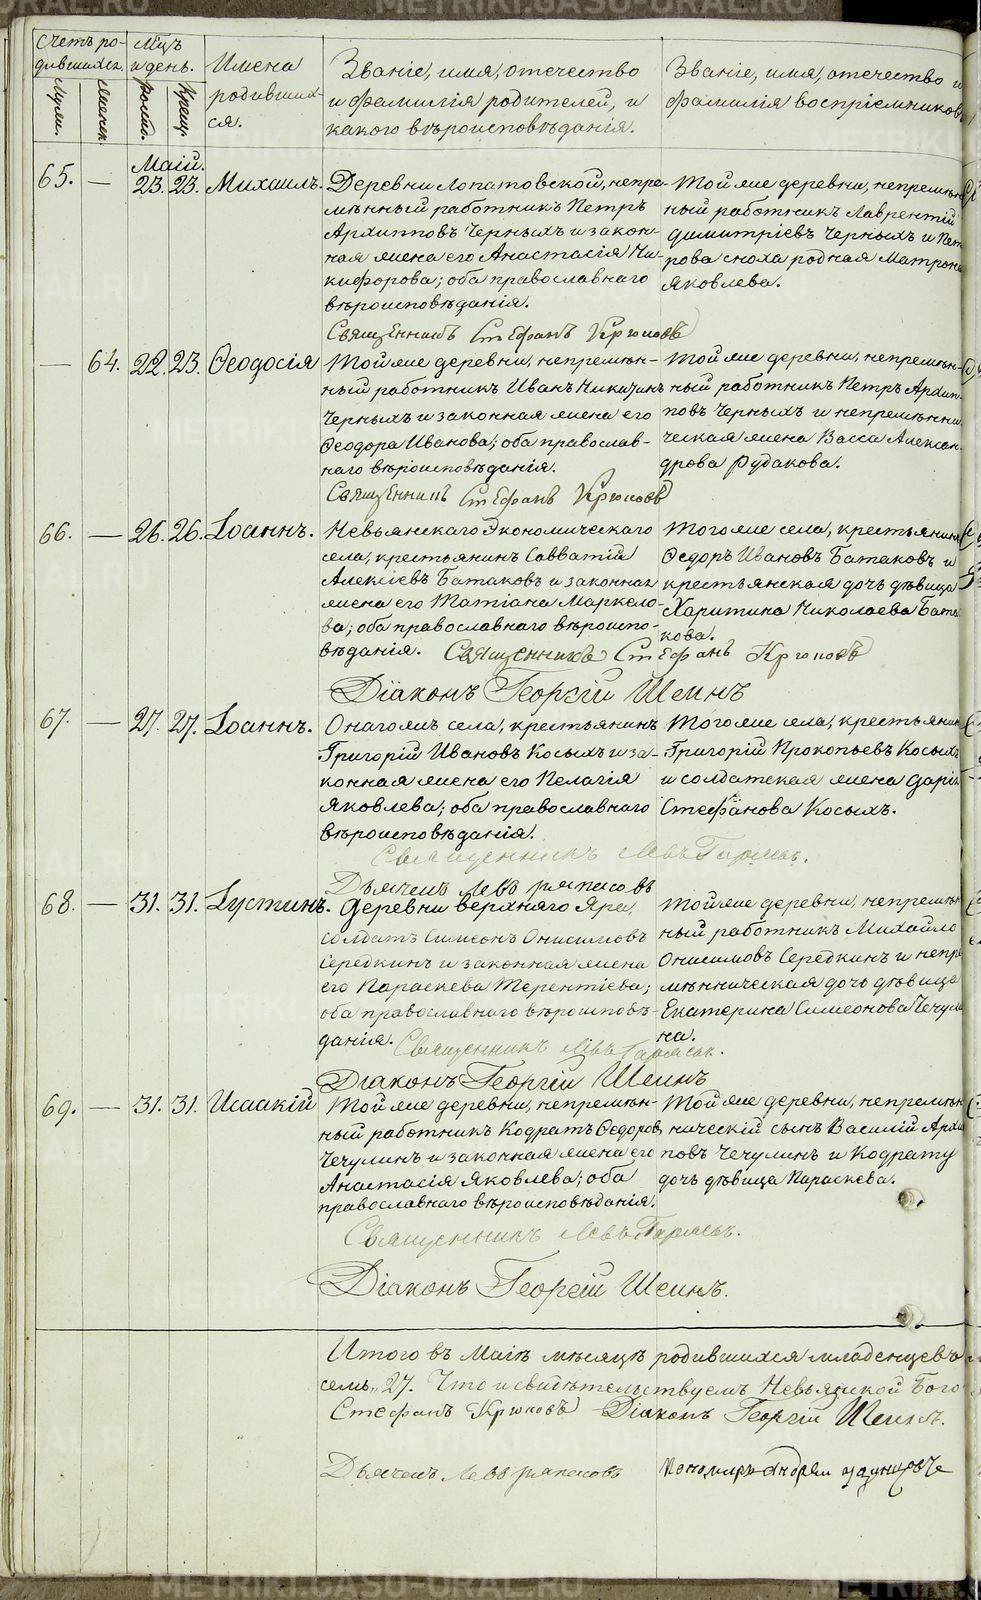 Счетъ ро-
дившихся.
Мцъ
и день.
Имена
родивших-
ся.
Званіе, имя, отечество
и фамилія родителей, и
какого вѣроисповѣданія.
Званіе, имя, отечество и
фамилія воспріемниковъ
Муж.
Женск.
рожд.
Крещ.
Маій.
65. — 23. 23. Михаилъ.
Деревни Лопатовской, непре-
мѣнный работникъ Петръ
Архипповъ Черныхъ и закон-
ная жена его Анастасія Ни-
кифорова; оба православнаго
вѣроисповѣданія.
Той же деревни, непремѣн-
ный работникъ Лаврентій
Димитріевъ Черныхъ и Пет
рова сноха родная Матрона
Яковлева.
Священникъ Стефанъ Крюковъ
— 64. 22. 23. Ѳеодосія
Той же деревни, непремѣн-
ный работникъ Иванъ Никитинъ
Черныхъ и законная жена его
Ѳеодора Иванова; оба православ-
наго вѣроисповѣданія.
Той же деревни, непремѣн-
ный работникъ Петръ Архип-
повъ Черныхъ и непремѣнни
ческая жена Васса Алексан-
дрова Рудакова.
Священникъ Стефанъ Крюковъ
66. — 26. 26. Іоаннъ.
Невьянскаго Экономическаго
села, крестьянинъ Савватій
Алексіевъ Батаковъ и законная
жена его Татіана Маркело-
ва; оба православнаго вѣроиспо-
вѣданія.
Того же села, крестьянинъ
Ѳедоръ Ивановъ Батаковъ и
крестьянская дочь дѣвица
Харитина Николаева Бата
кова.
Священникъ Стефанъ Крюковъ
Діаконъ Георгій Шеинъ
67. — 27. 27. Іоаннъ.
Онаго жъ села, крестьянинъ
Григорій Ивановъ Косыхъ и за-
конная жена его Пелагія
Яковлева; оба православнаго
вѣроисповѣданія.
Того же села, крестьянин
Григорій Прокопьевъ Косыхъ
и солдатская жена Дарія
Стефанова Косыхъ.
Священникъ Левъ
Дьячекъ Левъ
68. — 31. 31. Іустинъ.
Деревни верхняго Яра,
солдатъ Симеонъ Онисимовъ
Середкинъ и законная жена
его Параскева Терентіева;
оба православнаго вѣроисповѣ-
данія.
Той же деревни, непремѣн
ный работникъ Михайло
Онисимовъ Середкинъ и непре
мѣнническая дочь дѣвица
Екатерина Симеонова Чечули
на.
Священникъ Левъ
Діаконъ Георгій Шеинъ
69. — 31. 31. Исаакій
Той же деревни, непремѣн-
ный работникъ Кодратъ Ѳедоровъ
Чечулинъ и законная жена его
Анастасія Яковлева; оба
православнаго вѣроисповѣданія.
Той же деревни, непремѣн
ническій сынъ Василій Архи
повъ Чечулинъ и Кодрату
дочь дѣвица Параскева.
Священникъ Левъ
Діаконъ Георгій Шеинъ.
Итого въ Маіѣ мѣсяцѣ родившихся младенцевъ
семь „ 27. Что и свидѣтельствуемъ Невьянской Бого
Стефанъ Крюковъ Діаконъ Георгій Шеинъ.
Дьячекъ Левъ
Пономарь Андрей
METRIKI.GASU-URAL.RU